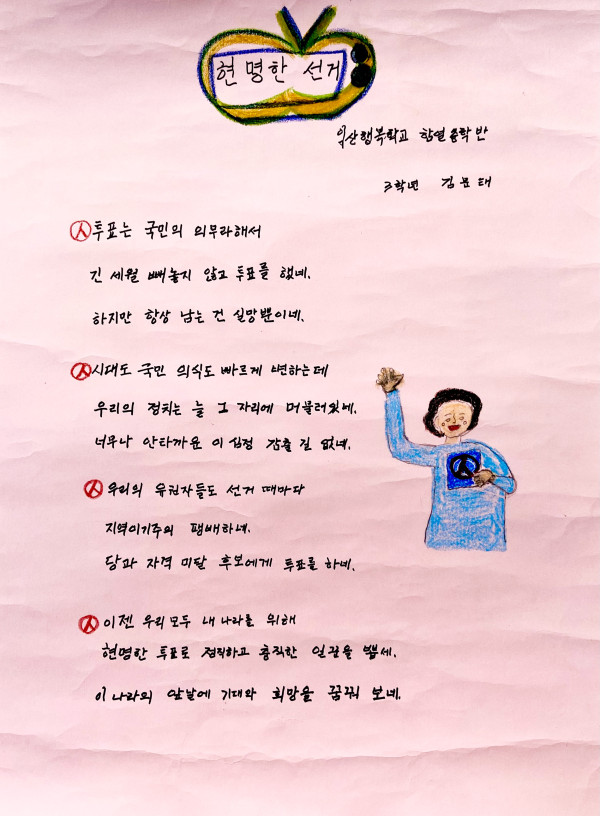 현명한 선거
익산행복학교 함열중학반
3학년 김묘태
투표는 국민의 의무라해서
긴 세월 빼놓지 않고 투표를 했네.
하지만 항상 남는 건 실망뿐이네.
시대도 국민 의식도 빠르게 변하는데
우리의 정치는 늘 그 자리에 머물러있네.
너무나 안타까운 이 심정 감출 길 없네.
우리의 유권자들도 선거 때마다
지역이기주의 팽배하네.
당과 자격 미달 후보에게 투표를 하네.
이젠 우리 모두 내 나라를 위해
현명한 투표로 정직하고 충직한 일꾼을 뽑세.
이 나라의 앞날에 기대와 희망을 꿈꿔 보네.